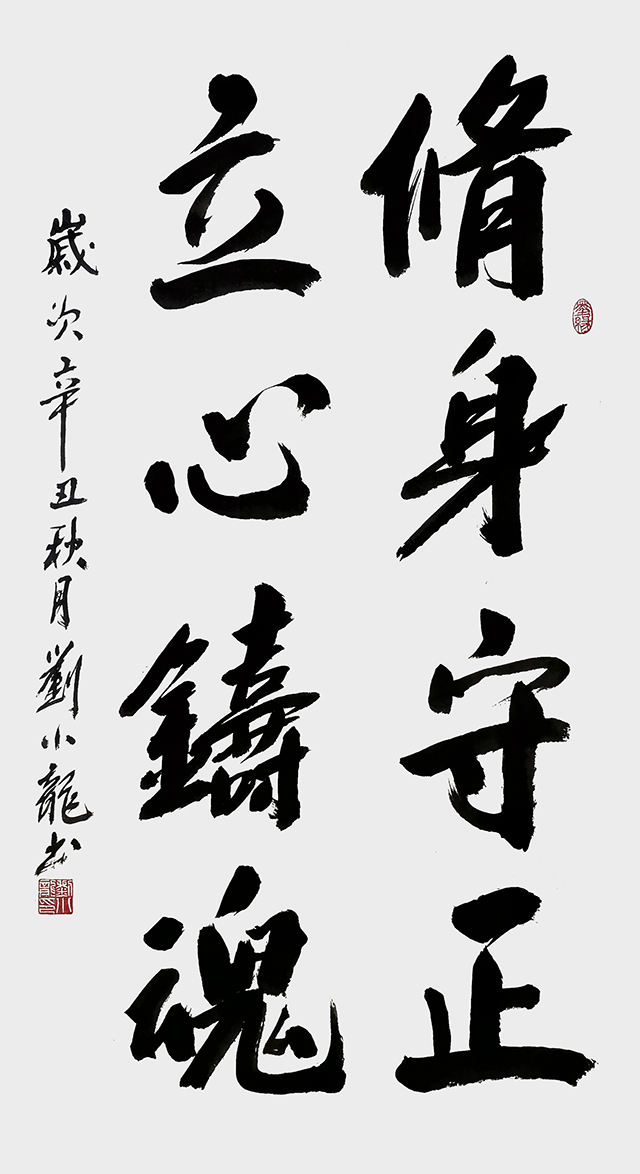 脩身守正
立心鑄魂
歲次辛丑秋月劉小龍书